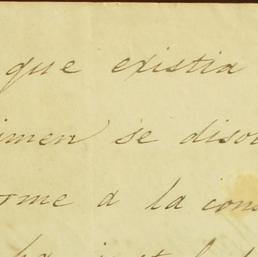 que existia
imen se diso
orme a la con